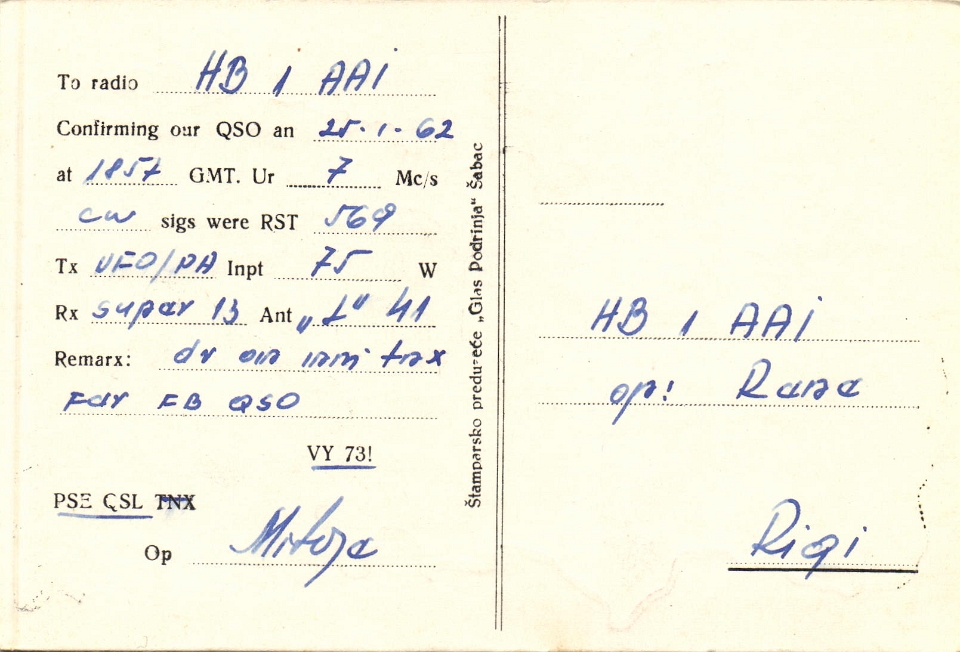 To radio HB 1 AAI
Confirming our QSO an 25.1.62
at 1857 GMT. Ur 7 Mc/s
cw sigs were RST 569
Tx VFO/PA Inpt 75 W
Rx super 13 Ant „L" 41
Remarx: dr om mni tnx
For FB QSO
VY 73!
PSE QSL TNX
Op
Štamparsko preduzeće „Glas Podrinja" Šabac
HB 1 AAI
op! Rene
Rigi